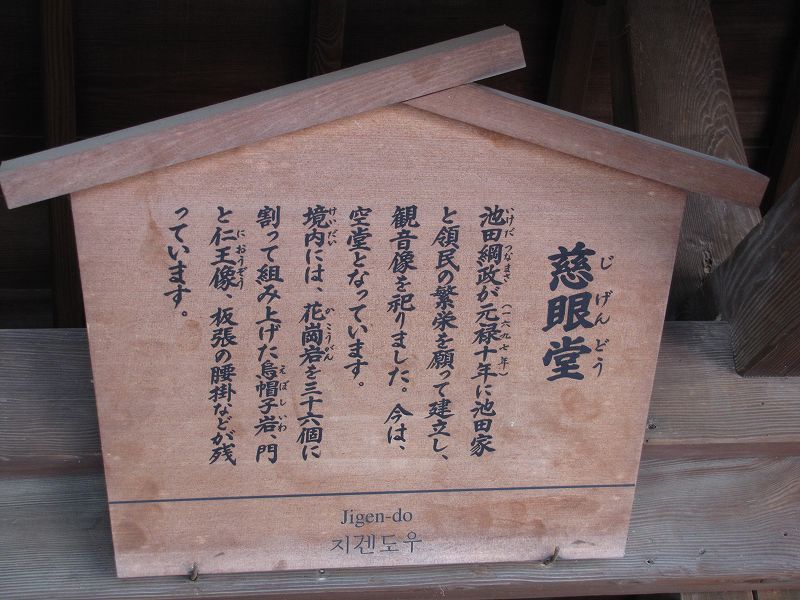 慈眼堂
じげんどう
池田綱政が元禄十年に池田家
いけだつなまさ
(一六九七年)
と領民の繁栄を願って建立し、
観音像を祀りました。今は、
空堂となっています。
境内には、花崗岩を三十六個に
けいだい
かこうがん
割って組み上げた烏帽子岩、門
えぼしいわ
と仁王像、板張の腰掛などが残
におうぞう
っています。
Jigen-do
지겐도우